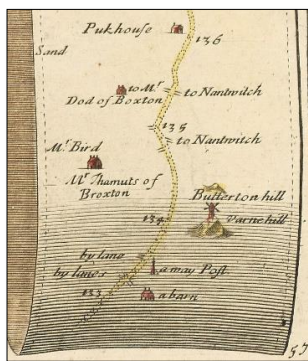 Pukhouse
136
Sand
to Mr.
Dod of Boxton
to Nantwitch
135
to Nantwitch
Mr. Bird
Mr. Thamuts of
Broxton
Bulterton hill
Varnehill
134
by lane
by lanes
a way Post
133
a barn